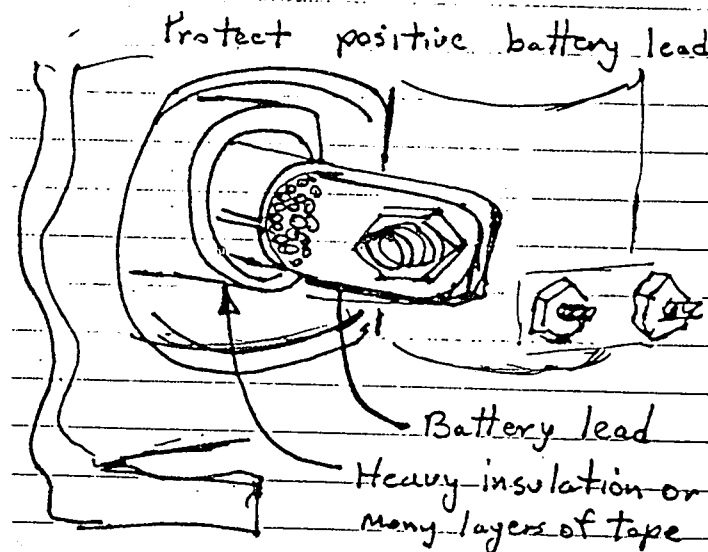 Protect positive battery lead
Battery lead
Heavy insulation or
Many layers of tape